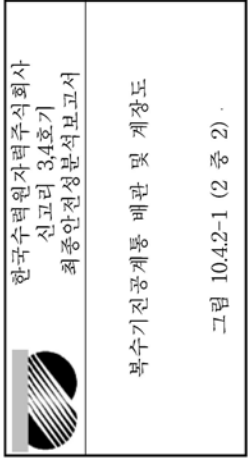 한국수력원자력주식회사
신고리 3,4호기
최종안전성분석보고서
복수기진공계통 배관 및 계장도
그림 10.4.2-1 (2 중 2)